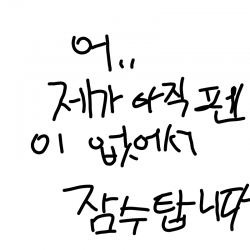 어..
제가 아직 펜
이 없에서
잠수탑니다